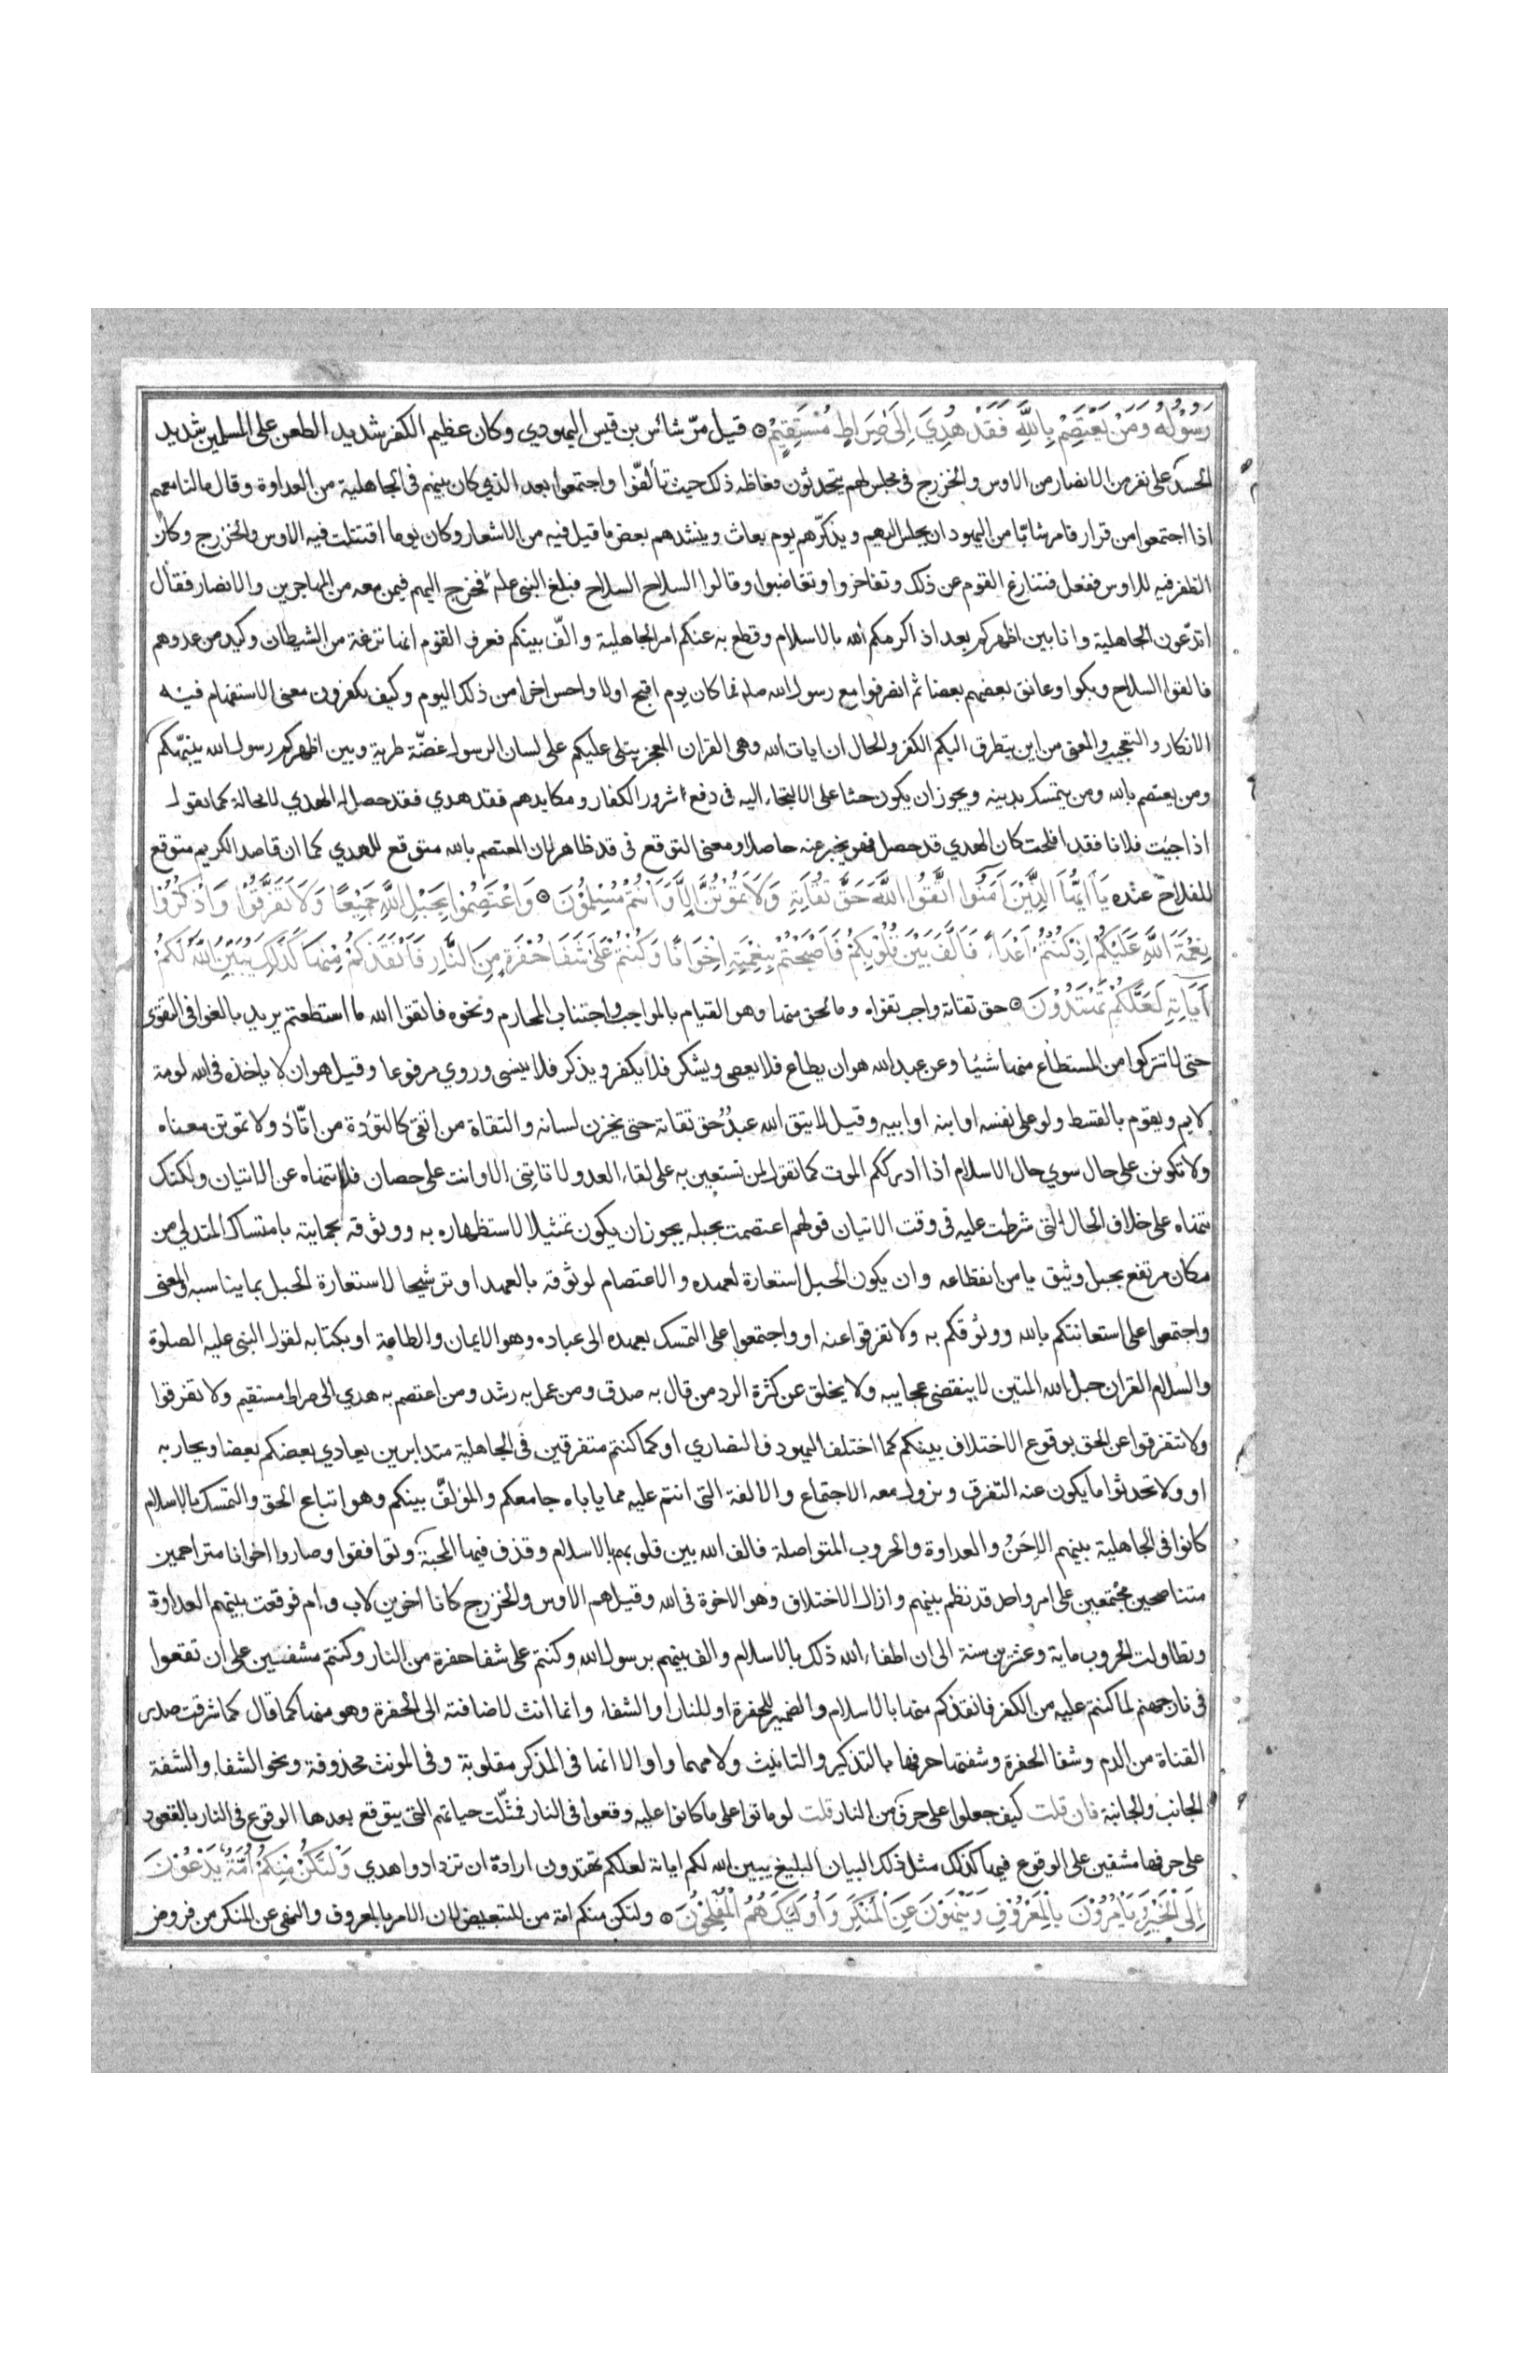 رَسُوْلُهُ وَمَنْ يَعْتَصِمْ بِاللَّهِ فَقَدْ هُدِيَ اِلَى صِرَاطٍ مُسْتَقِيْمٍ ۞ قيل مرّ شائس بن قيس اليهودي وكان عظيم الكفر شديد الطعن على المسلمين شديد
الحسد على نفر من الانصار من الاوس والخزرج فى مجلس لهم يتحدثون فغاظه ذلك حيث تألفّوا واجتمعوا بعد الذي كان بينهم فى الجاهلية من العداوة وقال مالنا معهم
اذا اجتمعوا من قرار فامر شابّا من اليهود ان يجلس اليهم ويذكرّهم يوم بعاث وينشدهم بعض ما قيل فيه من الاشعار وكان يوما اقتتلت فيه الاوس والخزرج وكان
الظفر فيه للاوس ففعل فتنازع القوم عن ذلك وتفاخروا وتغاضبوا وقالوا السلاح السلاح فبلغ النبى علم فخرج اليهم فيمن معه من المهاجرين والانصار فقال
اتدّعون الجاهلية وانا بين اظهركم بعد اذ اكرمكم الله بالاسلام وقطع به عنكم امر الجاهلية والّف بينكم فعرف القوم انها نزغة من الشيطان وكيد من عدوهم
فالقوا السلاح وبكوا وعانق بعضهم بعضا ثم انصرفوا مع رسول الله صلم فما كان يوم اقبح اولا واحسن اخرا من ذلك اليوم وكيف تكفرون معنى الاستفهام فيه
الانكار والتعجيب والمعنى من اين يتطرق اليكم الكفر والحال ان ايات الله وهى القران المعجز يتلى عليكم على لسان الرسول غضّة طرية وبين اظهركم رسول الله ينبّهكم
ومن يعتصم بالله ومن يتمسك بدينه ويجوز ان يكون حثا على الالتجاء اليه فى دفع شرور الكفار ومكايدهم فقد هدي فقد حصل له الهدي لا محالة كما تقول
اذا جيت فلانا فقد افلحت كان الهدي قد حصل فهو يخبر عنه حاصلا ومعنى التوقع فى قد ظاهر لان المعتصم بالله متوقع للهدي كما ان قاصد الكريم متوقع
للفلاح عنده يَا اَيُّهَا الَّذِيْنَ اٰمَنُوا اتَّقُوا اللَّهَ حَقَّ تُقَاتِهِ وَلَا تَمُوْتُنَّ اِلَّا وَاَنْتُمْ مُسْلِمُوْنَ ۞ وَاعْتَصِمُوا بِحَبْلِ اللَّهِ جَمِيْعًا وَلَا تَفَرَّقُوْا وَاذْكُرُوْا
نِعْمَةَ اللَّهِ عَلَيْكُمْ اِذْ كُنْتُمْ اَعْدَاءً فَاَلَّفَ بَيْنَ قُلُوْبِكُمْ فَاَصْبَحْتُمْ بِنِعْمَتِهِ اِخْوَانًا وَكُنْتُمْ عَلَى شَفَا حُفْرَةٍ مِنَ النَّارِ فَاَنْقَذَكُمْ مِنْهَا كَذَلِكَ يُبَيِّنُ اللَّهُ لَكُمْ
اٰيَاتِهِ لَعَلَّكُمْ تَهْتَدُوْنَ ۞ حق تقاتة واجب تقواه وما يحق منها وهو القيام بالمواجب واجتناب المحارم ونحوه فاتقوا الله ما استطعتم يريد بالغوا فى التقوى
حتى لا تتركوا من المستطاع منها شيئا وعن عبد الله هو ان يطاع فلا يعصى ويشكر فلا يكفر ويذكر فلا ينسى وروي مرفوعا وقيل هو ان لا ياخذه فى الله لومة
لايم ويقوم بالقسط ولو على نفسه او ابنه او ابيه وقيل لا يتق الله عبدٌ حق تقاته حتى يخزن لسانه والتقاة من اتقى كالتؤدة من اتّأد ولا تموتن معناه
ولا تكونن على حال سوي حال الاسلام اذا ادرككم الموت كما تقول لمن تستعين به على لقاء العدو لا تاتنى الا وانت على حصان فلا تنهاه عن الاتيان ولكنك
تنهاه على خلاف الحال التى شرطت عليه فى وقت الاتيان قولهم اعتصمت بحبله يجوز ان يكون تمثيلا لاستظهاره به ووثوقه بحمايته بامتساك المتدلي من
مكان مرتفع بحبل وثيق يامن انقطاعه وان يكون الحبل استعارة لعهده والاعتصام لوثوقه بالعهد او ترشيحا لاستعارة الحبل بما يناسبه والمعنى
واجتمعوا على استعانتكم بالله ووثوقكم به ولا تفرقوا عنه او واجتمعوا على التمسك بعهده الى عباده وهو الايمان والطاعة او بكتابه لقول النبى عليه الصلوة
والسلام القران حبل الله المتين لا ينقضى عجايبه ولا يخلق عن كثرة الرد من قال به صدق ومن عمل به رشد ومن اعتصم به هدي الى صراط مستقيم ولا تفرقوا
ولا تتفرقوا عن الحق بوقوع الاختلاف بينكم كما اختلف اليهود والنصاري او كما كنتم متفرقين فى الجاهلية متدابرين يعادي بعضكم بعضا ويحاربه
او ولا تحدثوا ما يكون عنه التفرق ويزول معه الاجتماع والالفة التى انتم عليه مما ياباه جامعكم والمؤلفّ بينكم وهو اتباع الحق والتمسك بالاسلام
كانوا فى الجاهلية بينهم الاِحَنُ والعداوة والحروب المتواصلة فالف الله بين قلوبهم بالاسلام وقذف فيها المحبة وتوافقوا وصاروا اخوانا متراحمين
متناصحين مجتمعين على امر واحد قد نظم بينهم وازال الاختلاف وهو الاخوة فى الله وقيل هم الاوس والخزرج كانا اخوين لاب وام فوقعت بينهم العداوة
وتطاولت الحروب ماية وعشرين سنة الى ان اطفاء الله ذلك بالاسلام والف بينهم برسول الله وكنتم على شفا حفرة من النار وكنتم مشفين على ان تقعوا
فى نار جهنم لما كنتم عليه من الكفر فانقذكم منها بالاسلام والضمير للحفرة او للنار او الشفاء وانما انث لاضافته الى الحفرة وهو منها كما قال كما شرقت صدر
القناة من الدم وشفا الحفرة وشفتها حرفها بالتذكير والتانيث ولامهما واو الا انها فى المذكر مقلوبة وفى المونث محذوفة ونحو الشفا والشفة
الجانب والجانبة فان قلت كيف جعلوا على حرف من النار قلت لو ماتوا على ما كانوا عليه وقعوا فى النار فمثّلت حياتهم التى يتوقع بعدها الوقوع فى النار بالقعود
على حرفها مشفين على الوقوع فيها كذلك مثل ذلك البيان البليغ يبين الله لكم اياته لعلكم تهتدون ارادة ان تزدادوا هدي وَلْتَكُنْ مِنْكُمْ اُمَّةٌ يَدْعُوْنَ
اِلَى الْخَيْرِ وَيَاْمُرُوْنَ بِالْمَعْرُوْفِ وَيَنْهَوْنَ عَنِ الْمُنْكَرِ وَاُولَئِكَ هُمُ الْمُفْلِحُوْنَ ۞ ولتكن منكم امة من للتبعيض لان الامر بالمعروف والنهى عن المنكر من فروض